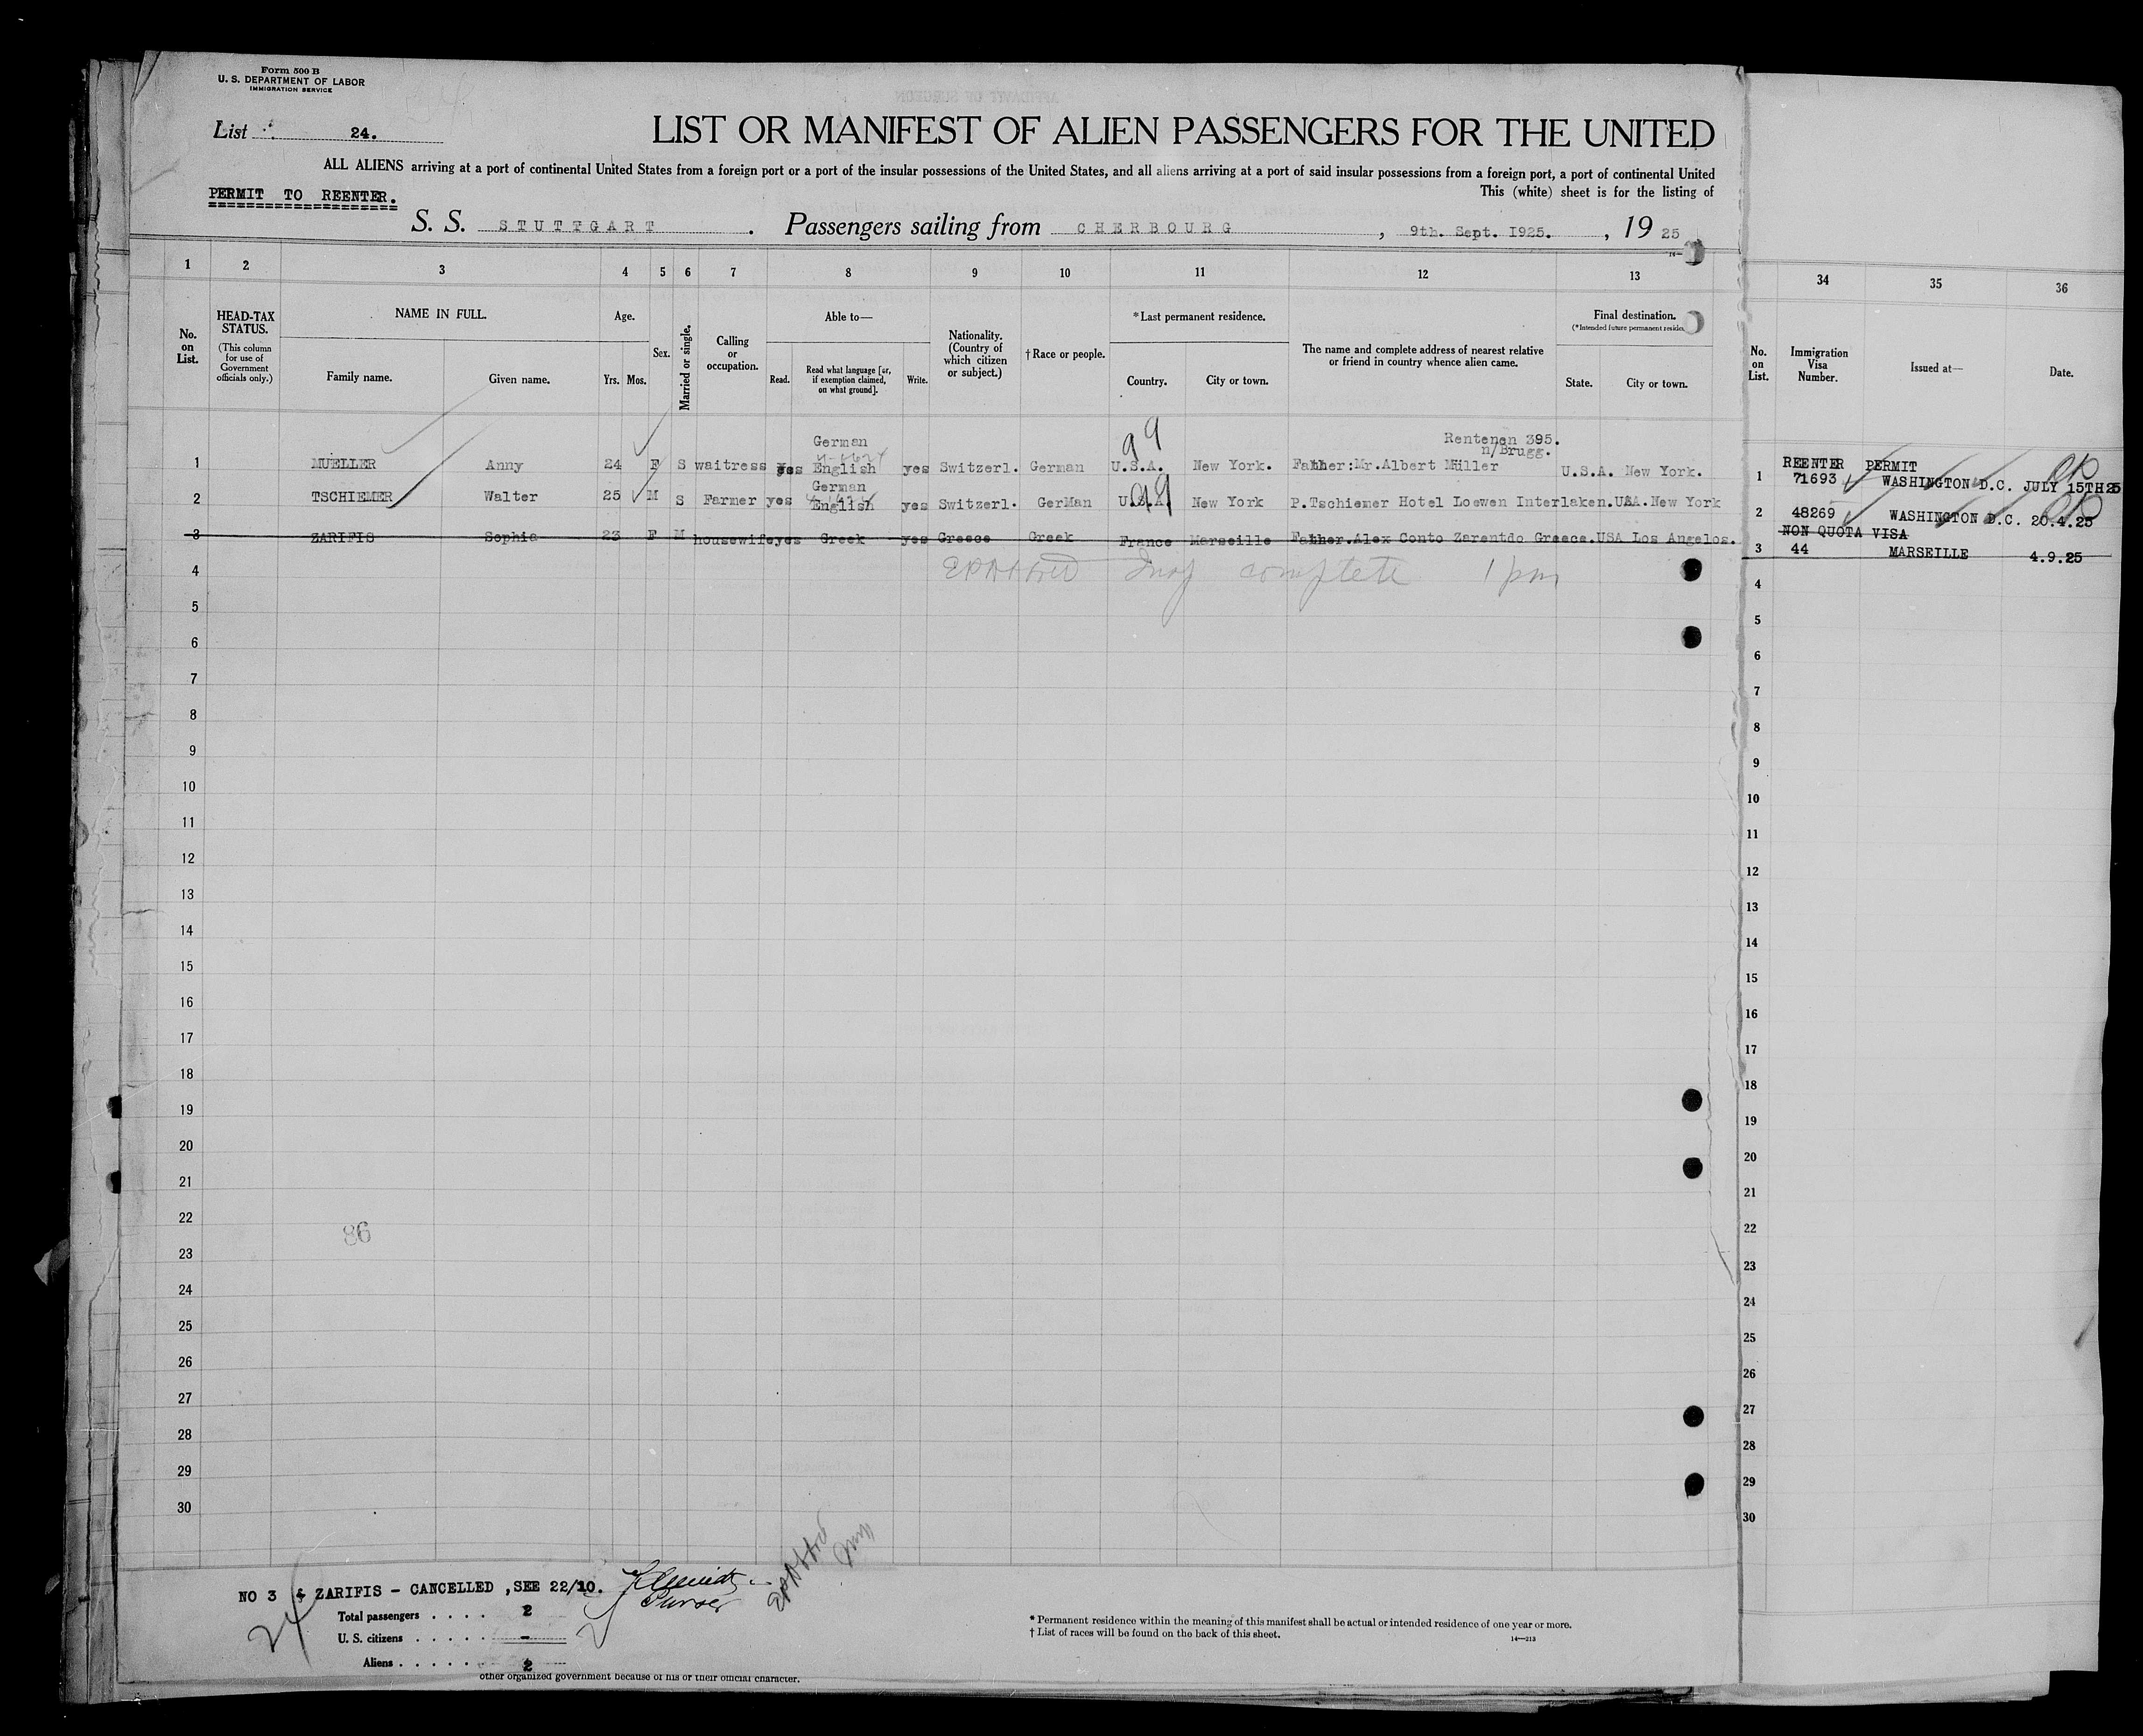 Form 500 B
U. S. DEPARTMENT OF LABOR
IMMIGRATION SERVICE
List 24.
LIST OR MANIFEST OF ALIEN PASSENGERS FOR THE UNITED
ALL ALIENS arriving at a port of continental United States from a foreign port or a port of the insular possessions of the United States, and all aliens arriving at a port of said insular possessions from a foreign port, a port of continental United
This (white) sheet is for the listing of
PERMIT TO REENTER.
S. S. STUTTGART. Passengers sailing from CHERBOURG, 9th. Sept. I925., 19 25
1 2 3 4 5 6 7 8 9 10 11 12 13 34 35 36
No. on List.
HEAD-TAX STATUS.
(This column for use of Government officials only.)
NAME IN FULL.
Family name. Given name.
Age.
Yrs. Mos.
Sex.
Married or single.
Calling or occupation.
Able to—
Read. Read what language [or, if exemption claimed, on what ground]. Write.
Nationality. (Country of which citizen or subject.)
†Race or people.
*Last permanent residence.
Country. City or town.
The name and complete address of nearest relative or friend in country whence alien came.
Final destination.
(*Intended future permanent reside
State. City or town.
No. on List.
Immigration Visa Number.
Issued at—
Date.
German 99 Rentenen 395.
n/Brugg.
1 MUELLER Anny 24 F S waitress yes English yes Switzerl. German U.S.A. New York. Father:Mr.Albert Müller U.S.A. New York.
REENTER PERMIT
1 71693 WASHINGTON D.C. JULY 15TH25
German
2 TSCHIEMER Walter 25 M S Farmer yes English yes Switzerl. GerMan U.S.A. New York P.Tschiemer Hotel Loewen Interlaken.USA.New York
99
2 48269 WASHINGTON D.C. 20.4.25
3 ZARIFIS Sophia 23 F M housewife yes Greek yes Greece Greek France Marseille Father.Alex Conto Zarentdo Greece.USA Los Angelos.
NON QUOTA VISA
3 44 MARSEILLE 4.9.25
4 Insp complete 1 pm
4
5
5
6
6
7
7
8
8
9
9
10
10
11
11
12
12
13
13
14
14
15
15
16
16
17
17
18
18
19
19
20
20
21
21
22
22
86
23
23
24
24
25
25
26
26
27
27
28
28
29
29
30
30
NO 3 ZARIFIS - CANCELLED ,SEE 22/10.
Purser
Total passengers . . . . 2
U. S. citizens . . . . . -
Aliens . . . . . 2
24
* Permanent residence within the meaning of this manifest shall be actual or intended residence of one year or more.
† List of races will be found on the back of this sheet.
14—213
other organized government because of his or their official character.